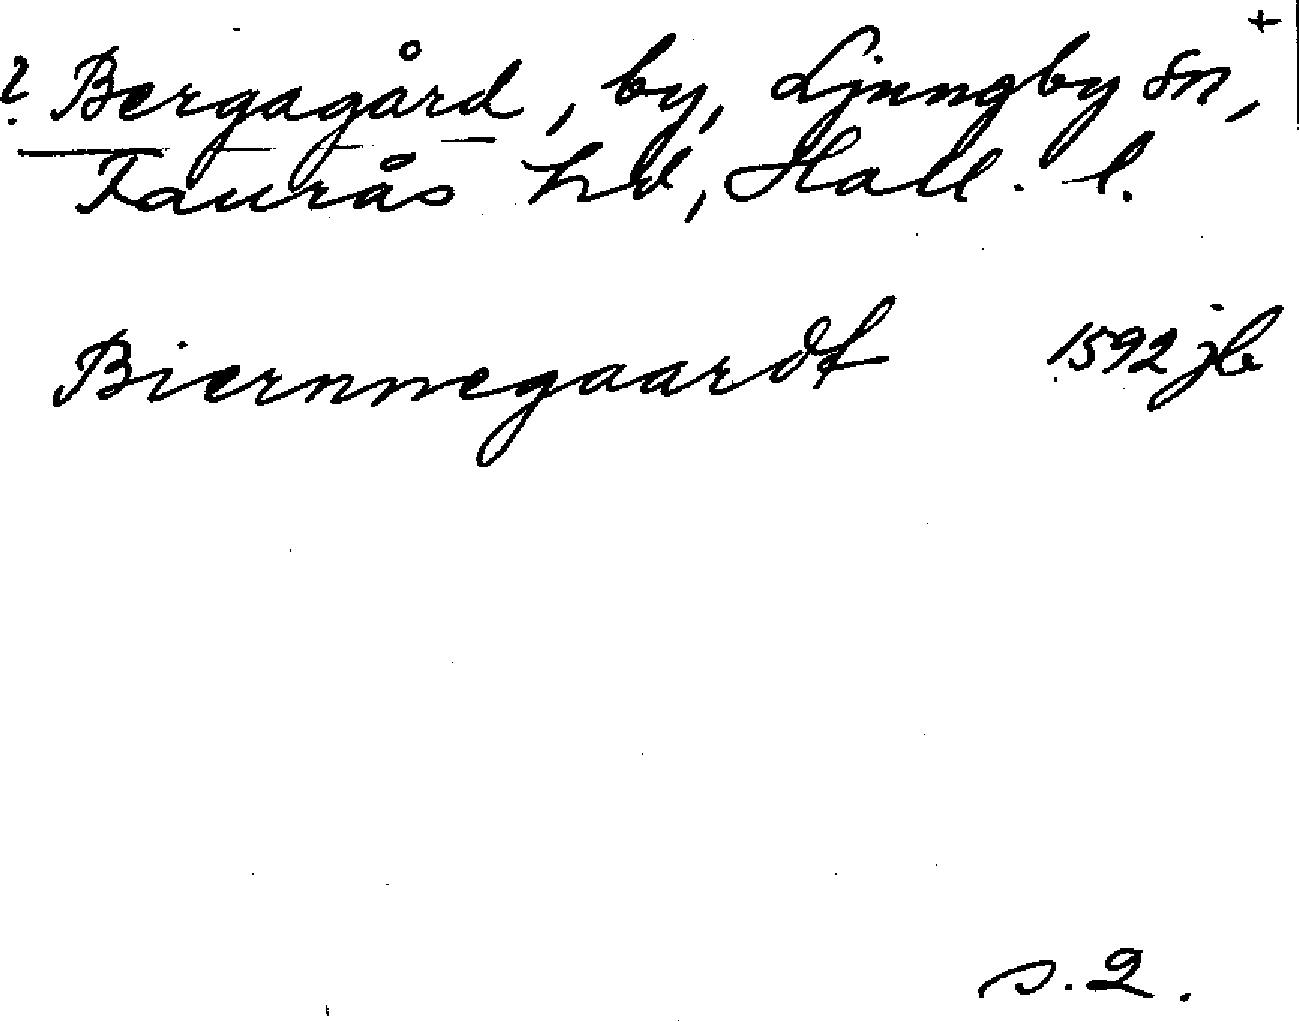 +
? Bergagård, by, Ljungby sn,
Faurås hd, Hall. l.
Biernnegaardt 1592 jb
s. 2.